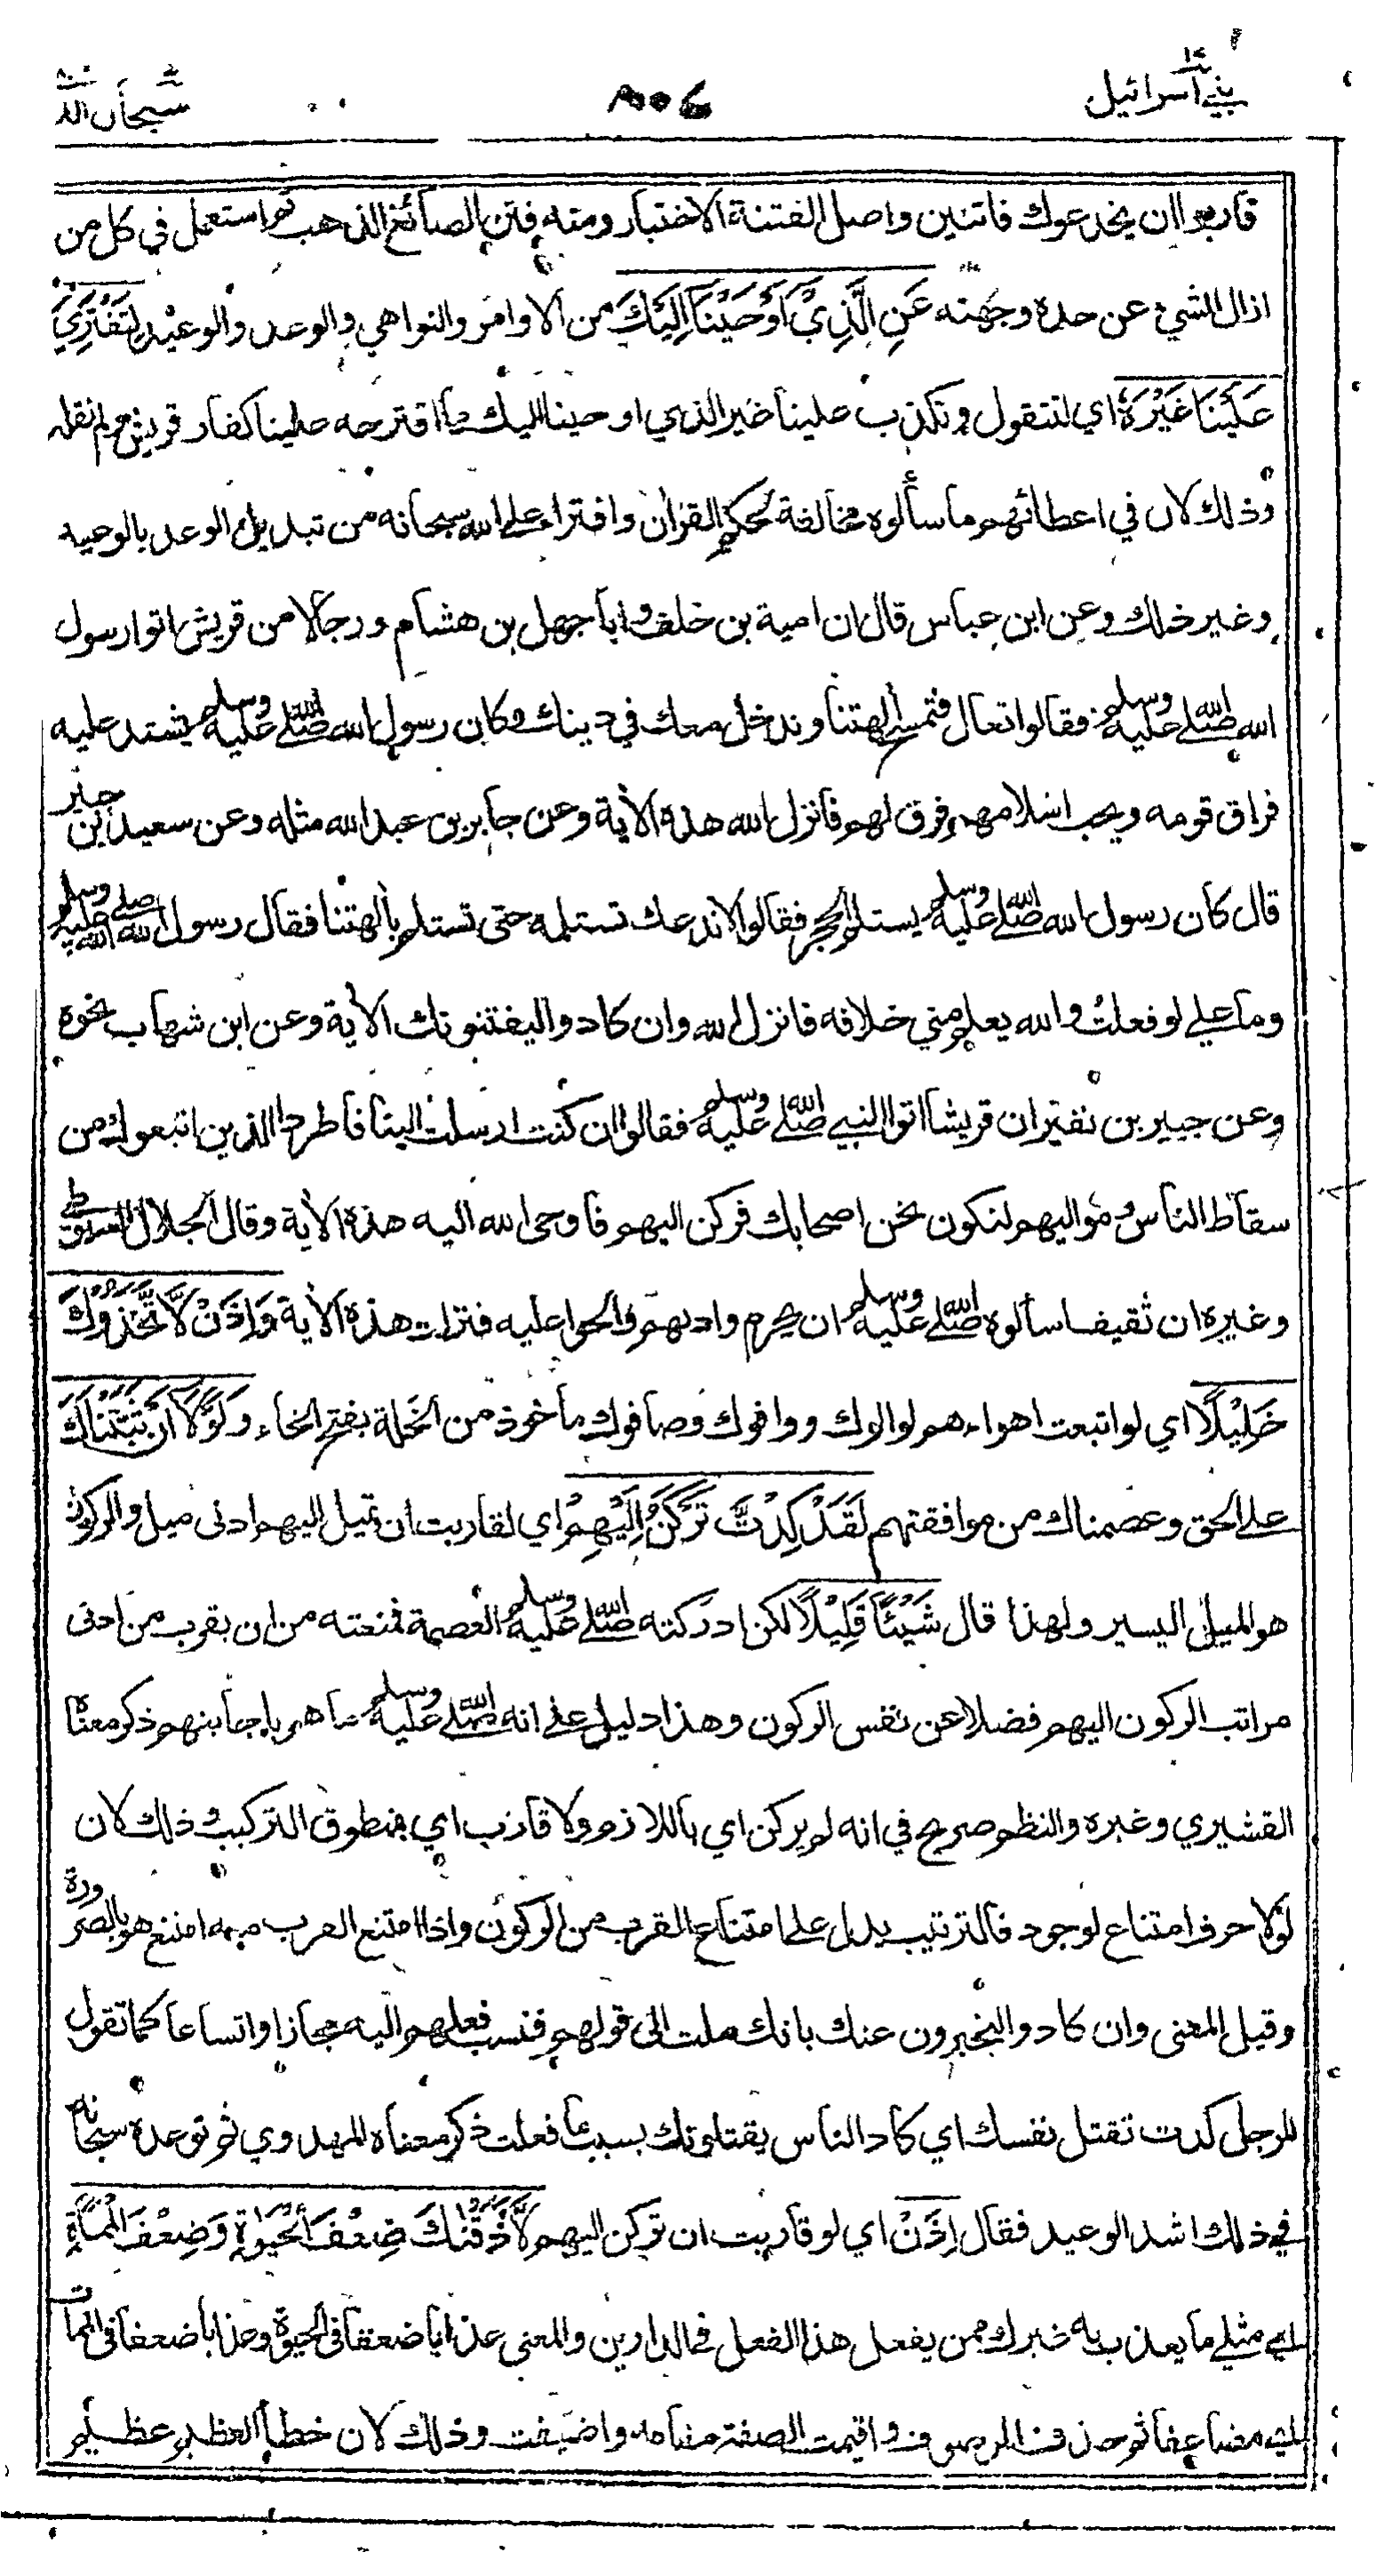 بني اسرائيل ١٧
٥٥٦
سبحان الذي
قاربوا ان يخدعوك فاتنين واصل الفتنة الاختبار ومنه فتن الصائغ الذهب ثم استعمل في كل من
ازال الشيء عن حده وجهته عَنِ الَّذِيْ اَوْحَيْنَا اِلَيْكَ من الاوامر والنواهي والوعد والوعيد لِتَفْتَرِيَ
عَلَيْنَا غَيْرَهٗ اي لتتقول وتكذب علينا غير الذي اوحينا اليك مما اقترحه علينا كفار قريش ولم نقله
وذلك لان في اعطائهم ما سألوه مخالفة لحكم القران وافتراء على الله سبحانه من تبديل الوعد بالوعيد
وغير ذلك وعن ابن عباس قال ان امية بن خلف وابا جهل بن هشام ورجالا من قريش اتوا رسول
الله صلى الله عليه وسلم فقالوا تعال فتمسح الهتنا وندخل معك في دينك وكان رسول الله صلى الله عليه وسلم يشتد عليه
فراق قومه ويحب اسلامهم فرق لهم فانزل الله هذه الأية وعن جابر بن عبد الله مثله وعن سعيد ابن جبير
قال كان رسول الله صلى الله عليه وسلم يستلم الحجر فقالوا لا ندعك تستلمه حتى تستلم بالهتنا فقال رسول الله صلى الله عليه وسلم
وما علي لو فعلت والله يعلم مني خلافه فانزل الله وان كادوا ليفتنونك الأية وعن ابن شهاب نحوه
وعن جبير بن نفير ان قريشا اتوا النبي صلى الله عليه وسلم فقالوا ان كنت ارسلت الينا فاطرد الذين اتبعوك من
سقاط الناس ومواليهم لنكون نحن اصحابك فركن اليهم فاوحى الله اليه هذه الأية وقال الجلال السيوطي
وغيره ان ثقيفا سألوه صلى الله عليه وسلم ان يحرم واديهم والحوا عليه فنزلت هذه الأية وَاِذَنْ لَّاتَّخَذُوْكَ
خَلِيْلًا اي لو اتبعت اهواءهم لوالوك ووافوك وصافوك مأخوذ من الخلة بفتح الخاء وَلَوْلَا اَنْ ثَبَّتْنَاكَ
على الحق وعصمناك من موافقتهم لَقَدْ كِدْتَّ تَرْكَنُ اِلَيْهِمْ اي لقاربت ان تميل اليهم ادنى ميل والركون
هو الميل اليسير ولهذا قال شَيْئًا قَلِيْلًا لكن ادركته صلى الله عليه وسلم العصمة فمنعته من ان يقرب من ادنى
مراتب الركون اليهم فضلا عن نفس الركون وهذا دليل على انه صلى الله عليه وسلم ما هم باجابتهم ذكر معناه
القشيري وغيره والنظم صريح في انه لم يركن اي باللازم ولا قارب اي بمنطوق التركيب وذلك لان
لولا حرف امتناع لوجود فالترتيب يدل على امتناع القرب من الركون واذا امتنع القرب منه امتنع هو بالضرورة
وقيل المعنى وان كادوا ليخبرون عنك بانك ملت الى قولهم فنسب فعلهم اليه مجازا واتساعا كما تقول
للرجل كدت تقتل نفسك اي كاد الناس يقتلونك بسبب ما فعلت ذكر معناه المهدوي ثم توعده سبحانه
في ذلك اشد الوعيد فقال اِذَنْ اي لو قاربت ان تركن اليهم لَّاَذَقْنٰكَ ضِعْفَ الْحَيٰوةِ وَضِعْفَ الْمَمَاتِ
اي مثلي ما يعذب به غيرك ممن يفعل هذا الفعل في الدارين والمعنى عذابا ضعفا في الحيوة وعذابا ضعفا في الممات
اي مضاعفا ثم حذف الموصوف واقيمت الصفة مقامه واضيفت وذلك لان خطأ العظيم عظيم